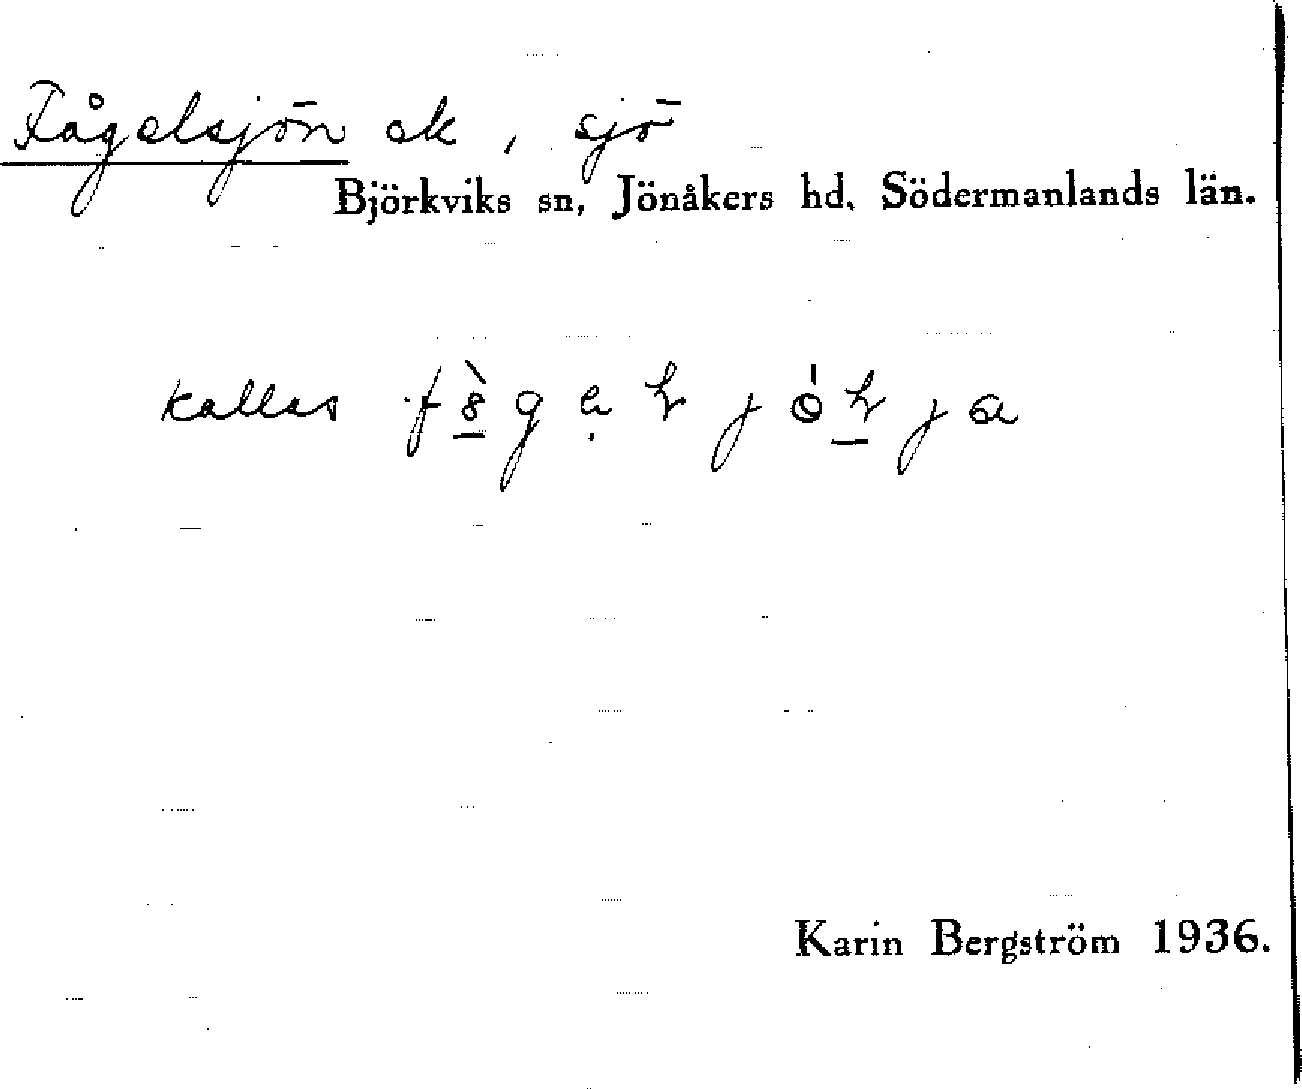 Fågelsjön ek, sjö
Björkviks sn, Jönåkers hd. Södermanlands län.
kallas
Karin Bergström 1936.